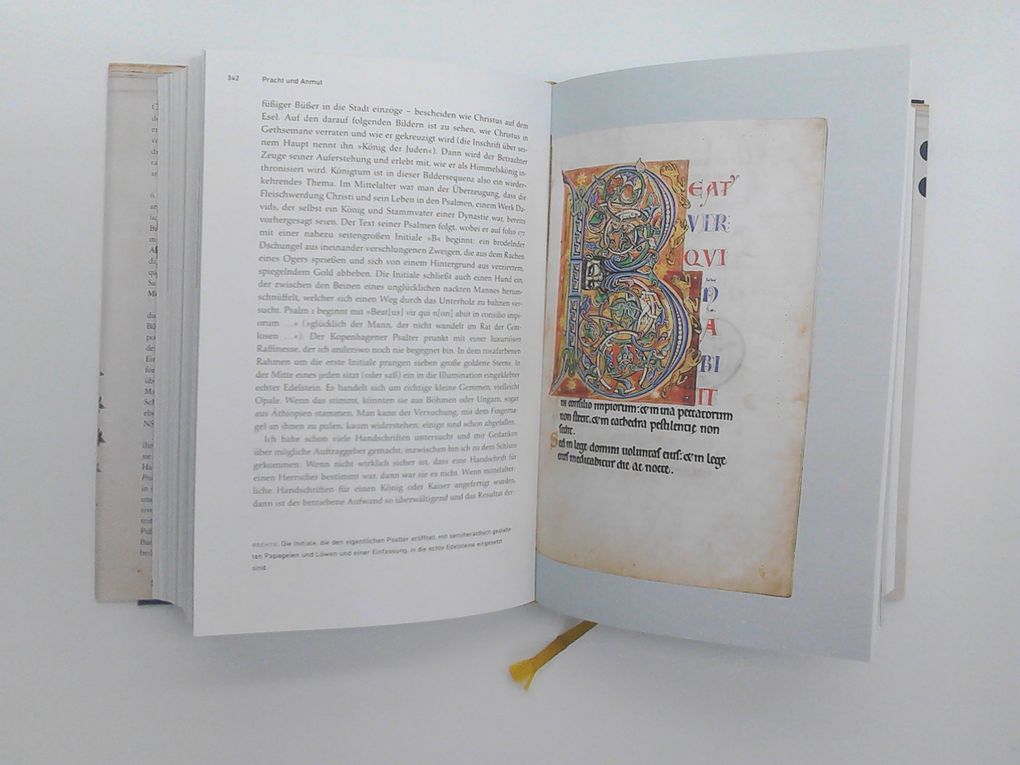 342 Pracht und Anmut
füßiger Büßer in die Stadt einzöge – bescheiden wie Christus auf dem
Esel. Auf den darauf folgenden Bildern ist zu sehen, wie Christus in
Gethsemane verraten und wie er gekreuzigt wird (die Inschrift über sei-
nem Haupt nennt ihn »König der Juden«). Dann wird der Betrachter
Zeuge seiner Auferstehung und erlebt mit, wie er als Himmelskönig in-
thronisiert wird. Königtum ist in dieser Bildersequenz also ein wieder-
kehrendes Thema. Im Mittelalter war man der Überzeugung, dass die
Fleischwerdung Christi und sein Leben in den Psalmen, einem Werk Da-
vids, der selbst ein König und Stammvater einer Dynastie war, bereits
vorhergesagt seien. Der Text seiner Psalmen folgt, wobei er auf folio 17r
mit einer nahezu seitengroßen Initiale »B« beginnt: ein brodelnder
Dschungel aus ineinander verschlungenen Zweigen, die aus dem Rachen
eines Ogers sprießen und sich von einem Hintergrund aus verziertem,
spiegelndem Gold abheben. Die Initiale schließt auch einen Hund ein,
der zwischen den Beinen eines unglücklichen nackten Mannes herum-
schnüffelt, welcher sich einen Weg durch das Unterholz zu bahnen ver-
sucht. Psalm 1 beginnt mit »Beat[us] vir qui n[on] abiit in consilio impi-
orum …« (»glücklich der Mann, der nicht wandelt im Rat der Gott-
losen …«). Der Kopenhagener Psalter prunkt mit einer luxuriösen
Raffinesse, der ich anderswo noch nie begegnet bin. In dem rosafarbenen
Rahmen um die erste Initiale prangen sieben große goldene Sterne. In
der Mitte eines jeden sitzt (oder saß) ein in die Illumination eingeklebter
echter Edelstein. Es handelt sich um richtige kleine Gemmen, vielleicht
Opale. Wenn das stimmt, könnten sie aus Böhmen oder Ungarn, sogar
aus Äthiopien stammen. Man kann der Versuchung, mit dem Fingerna-
gel an ihnen zu pulen, kaum widerstehen; einige sind schon abgefallen.
Ich habe schon viele Handschriften untersucht und mir Gedanken
über mögliche Auftraggeber gemacht; inzwischen bin ich zu dem Schluss
gekommen: Wenn nicht wirklich sicher ist, dass eine Handschrift für
einen Herrscher bestimmt war, dann war sie es nicht. Wenn mittelalter-
liche Handschriften für einen König oder Kaiser angefertigt wurden,
dann ist der betriebene Aufwand so überwältigend und das Resultat der-
RECHTS: Die Initiale, die den eigentlichen Psalter eröffnet, mit semiheraldisch gestalte-
ten Papageien und Löwen und einer Einfassung, in die echte Edelsteine eingesetzt
sind.
B EAT
VIR
QUI
N
A
BI
IT
in consilio impiorum: & in uia peccatorum
non stetit, & in cathedra pestilentie non
sedit.
Sed in lege domini uoluntas eius: & in lege
eius meditabitur die ac nocte.